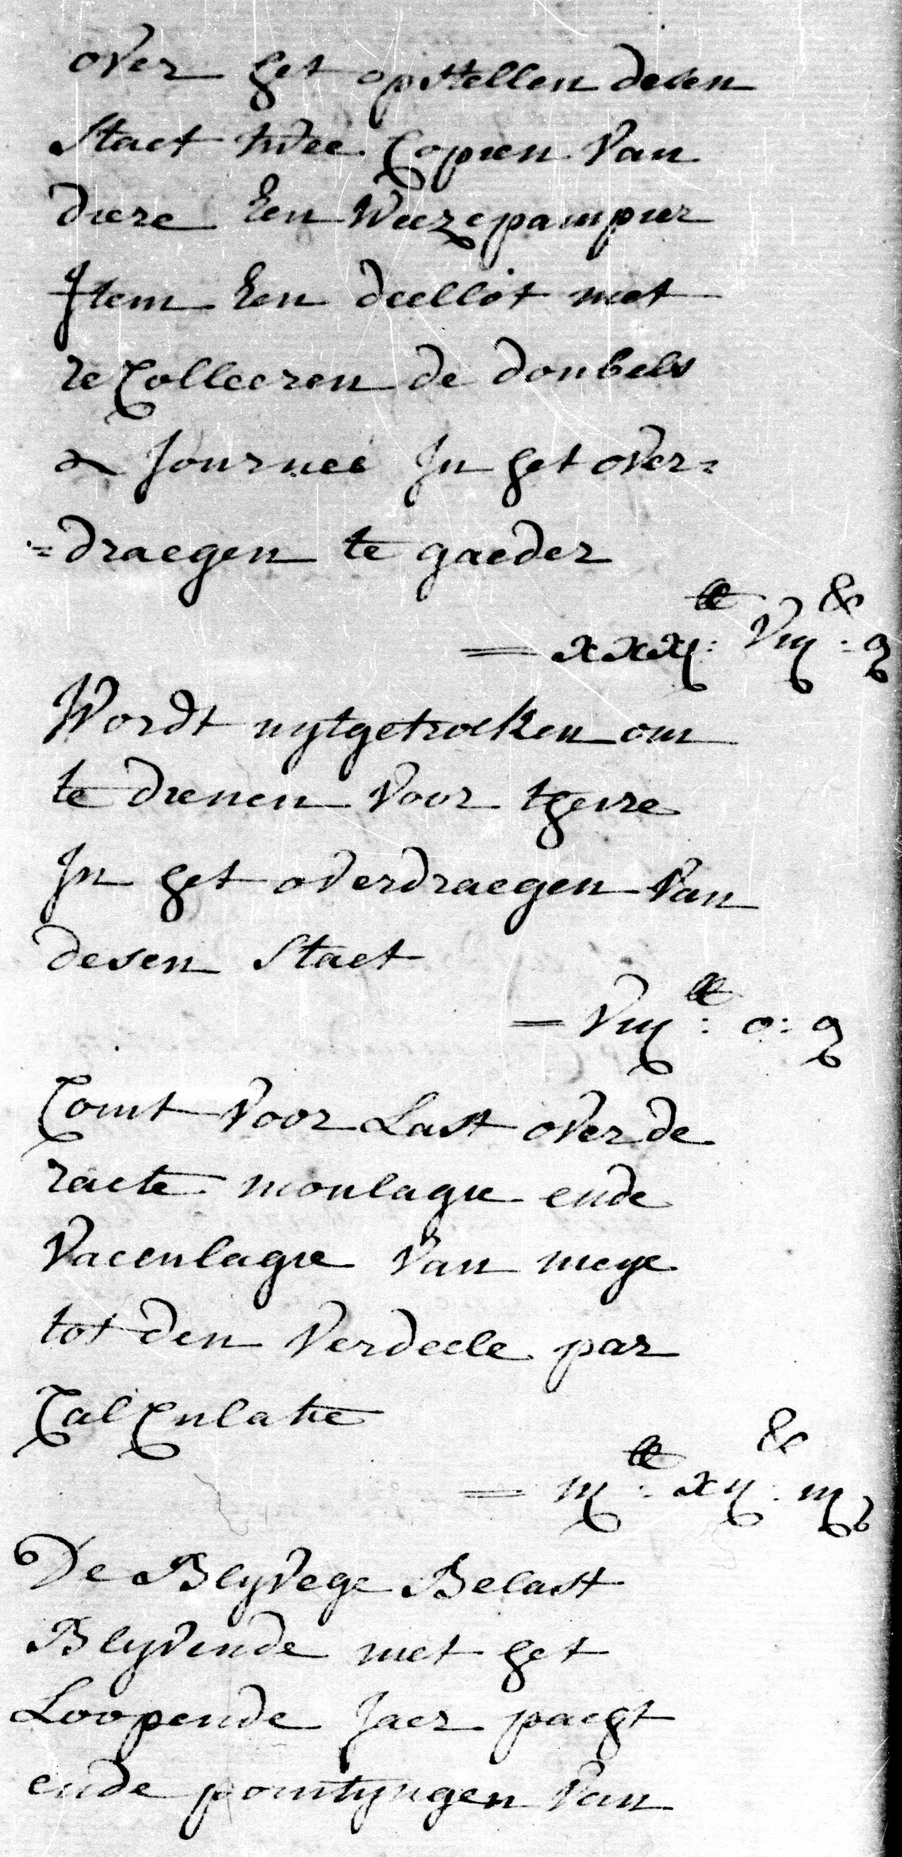 over het opstellen desen
Staet twee Copien van
diere Een Weezepampier
Item Een deellot met
re Colleeren de doubels
& Journee In het over=
=draegen te gaeder
= xxxj lb: viij s: g
Wordt uytgetrocken om
te dienen voor tgeire
In het overdraegen van
desen Staet
= viij lb: o: g
Comt voor Last over de
racte moulagie ende
vaceulagie van meye
tot den verdeele par
Calculatie
= iij lb: xij s: iij g
De Blyvege Belast
Blyvende met het
Loopende Jaer pacht
ende pointyngen van